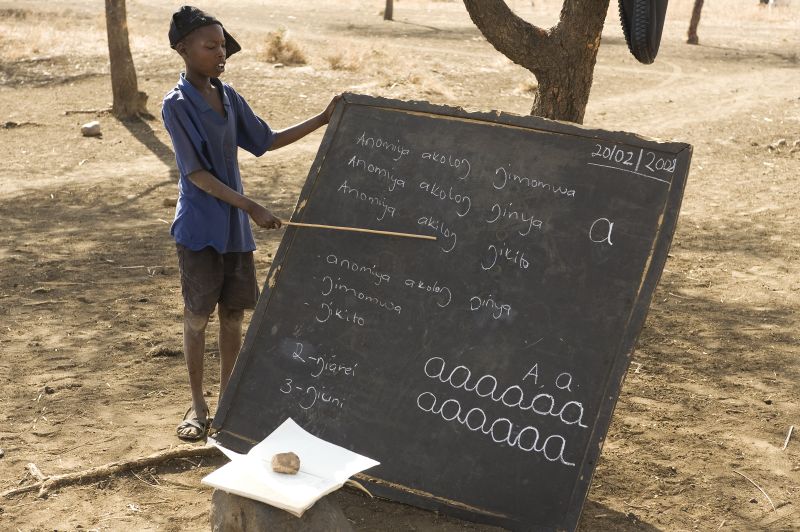 20/02/2008
Anomiya akoloŋ ŋimomwa
Anomiya akoloŋ ŋiŋya
Anomiya akiloŋ ŋikito
a
. anomiya akoloŋ ŋiŋya
. ŋimomwa
- ŋikito
2-ŋiarei
3-ŋiuni
A. a.
aaaaaaa
aaaaaaa